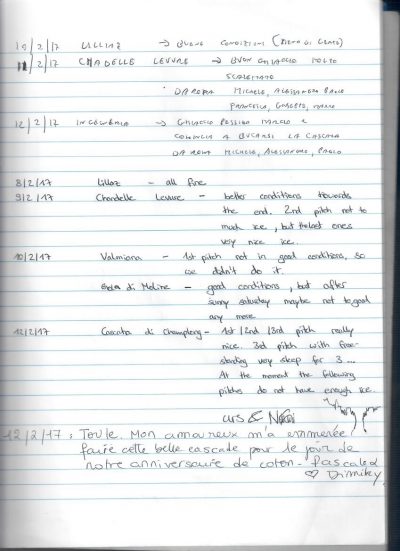 10/2/17 LILLAZ → BUONE CONDIZIONI
11/2/17 CHADELLE LEVURE → BUON GHIACCIO MOLTO
SCALETTATO
DA ROMA MICHELE, ALESSANDRA
FRANCESCA,
12/2/17 → GHIACCIO PESSIMO MARCIO E
COMINCIA A BUCARSI LA CASCATA
DA ROMA MICHELE, ALESSANDRO, PAOLO
8/2/17 Lillaz - all fine
9/2/17 Chandelle Levure - better conditions towards
the end. 2nd pitch not to
much ice, but the last ones
very nice ice.
10/2/17 Valmiana - 1st pitch not in good conditions, so
we didn't do it.
di Moline - good conditions, but after
sunny saturday maybe not to good
any more
12/2/17 Cascata di Champleng - 1st/2nd/3rd pitch really
nice. 3rd pitch with free-
standing very steep for 3...
At the moment the following
pitches do not have enough ice.
URS &
12/2/17 : Toule. Mon amoureux m'a emmenée
faire cette belle cascade pour le jour de
notre anniversaire de coton - Pascale &
Dimitry